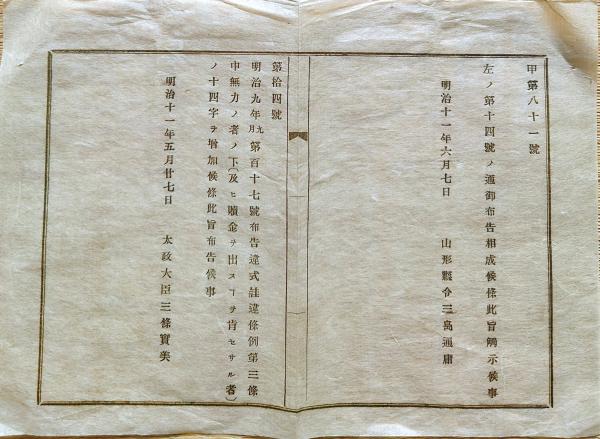 甲第八十一號
左ノ第十四號ノ通御布告相成候條此旨觸示候事
明治十一年六月七日　山形縣令三島通庸
第拾四號
明治九年九月第百十七號布告違式詿違條例第三條
中無力ノ者ノ下(及ヒ贖金ヲ出スヿヲ肯セサル者)
ノ十四字ヲ增加候條此旨布告候事
明治十一年五月廿七日　太政大臣三條實美